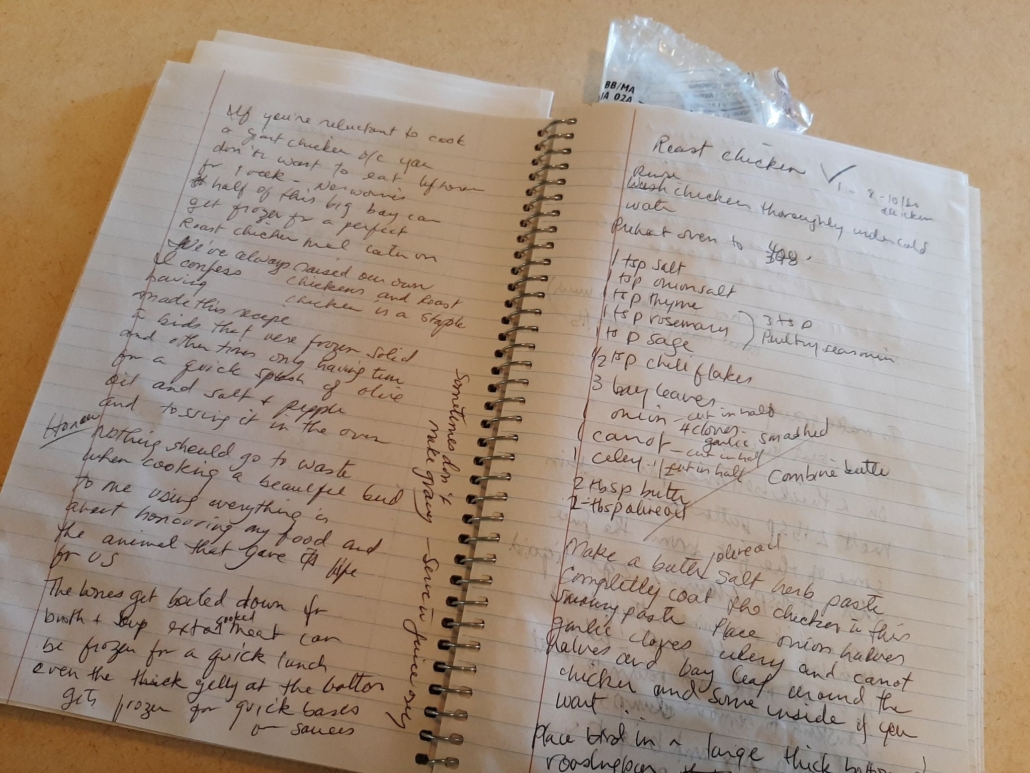 If you're reluctant to cook
a giant chicken b/c you
don't want to eat leftovers
for 1 week - No worries
half of this big boy can
get frozen for a perfect
Roast chicken meal later on
We've always raised our own
chickens and Roast
chicken is a staple
I confess
having
made this recipe
birds that were frozen solid
and other times only having time
for a quick splash of olive
oil and salt + pepper
and tossing it in the oven
Honor
nothing should go to waste
when cooking a beautiful bird
to me using everything is
about honouring my food and
the animal that gave life
for US
The bones get boiled down for
broth + soup extra cooked meat can
be frozen for a quick lunch
even the thick gelly at the bottom
gets frozen for quick bases
or sauces
Sometimes don't
make gravy - Serve in juice only
BB/MA
02A
Roast chicken ✓
1 - 8-10 lbs
chicken
Rinse
Wash chicken thoroughly under cold
water
Preheat oven to
1 tsp salt
1 tsp onion salt
1 tsp thyme
1 tsp rosemary
1 tsp sage
3 tsp
Poultry seasonin
1/2 tsp chili flakes
3 bay leaves
onion - cut in half
4 cloves garlic smashed
1 carrot - cut in half
1 celery / cut in half
Combine butter
2 tbsp butter
2 tbsp olive oil
Make a butter / olive oil salt herb paste
Completly coat the chicken in this
savoury paste Place onion halves
garlic cloves celery and carrot
halves and bay leaf around the
chicken and some inside if you
want
Place bird in a large thick bottom
roasting pan